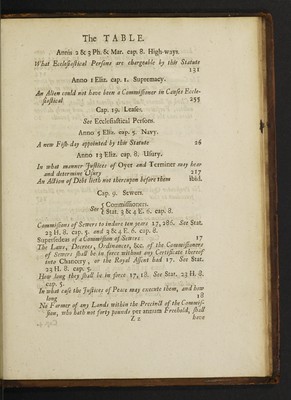 The TABLE.
Annis 2 & 3 Ph. & Mar. cap. 8. High-ways.
What Ecclesiastical Persons are chargeable by this Statute
131
Anno 1 Eliz. cap. 1. Supremacy.
An Alien could not have been a Commissioner in Causes Eccle-
siastical 255
Cap. 19. Leases.
See Ecclesiastical Persons.
Anno 5 Eliz. cap. 5. Navy.
A new Fish-day appointed by this Statute 26
Anno 13 Eliz. cap. 8. Usury.
In what manner Justices of Oyer and Terminer may hear
and determine Usury 217
An Action of Debt lieth not thereupon before them ibid.
Cap. 9. Sewers.
See { Commissioners.
{ Stat. 3 & 4 E. 6. cap. 8.
Commissions of Sewers to indure ten years 17, 286. See Stat.
23 H. 8. cap. 5. and 3 & 4 E. 6. cap. 8.
Supersedeas of a Commission of Sewers 17
The Laws, Decrees, Ordinances, &c. of the Commissioners
of Sewers shall be in force without any Certificate thereof
into Chancery, or the Royal Assent had 17. See Stat.
23 H. 8. cap. 5.
How long they shall be in force 17, 18. See Stat. 23 H. 8.
cap. 5.
In what case the Justices of Peace may execute them, and how
long 18
No Farmer of any Lands within the Precinct of the Commis-
sion, who hath not forty pounds per annum Freehold, shall
Z 2 have